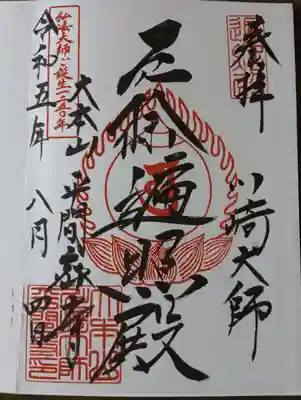 奉拝
川崎大師
厄除遍照殿
大本山
平間寺
弘法大師ご誕生一二五〇年
令和五年八月四日